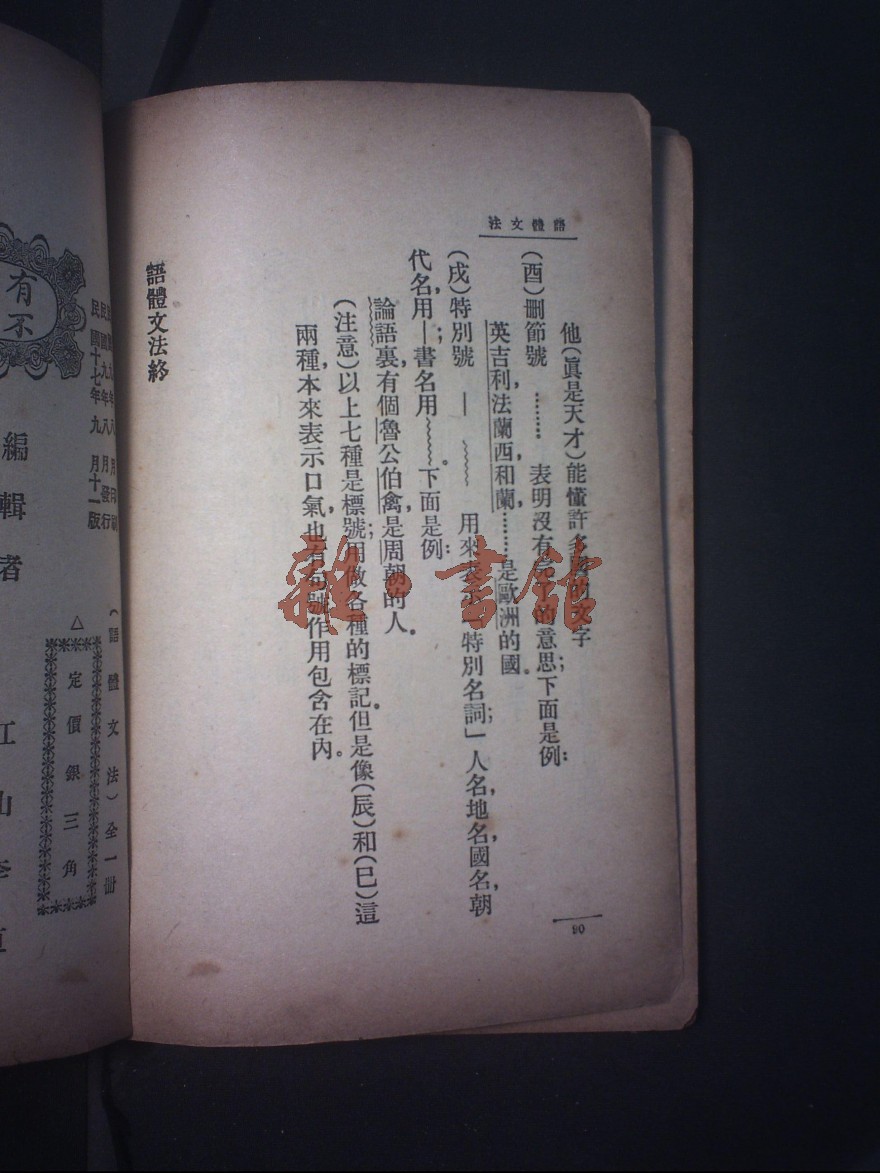 語體文法
他(眞是天才)能懂許多的文字
(酉)刪節號 ……… 表明沒有完了的意思;下面是例:
英吉利,法蘭西,和蘭………是歐洲的國。
(戌)特別號 — ﹏﹏ 用來表示「特別名詞;」人名,地名,國名,朝
代名,用—;書名用﹏﹏。下面是例:
論語裏,有個魯公伯禽,是周朝的人。
(注意)以上七種是標號;用做各種的標記,但是像(辰)和(巳)這
兩種,本來表示口氣,也有句號作用包含在內。
語體文法終
90
有
不
民國九年八月發行
民國十七年九月十一版
編輯者
江山李
(語體文法)全一冊
△定價銀三角
雜·書館